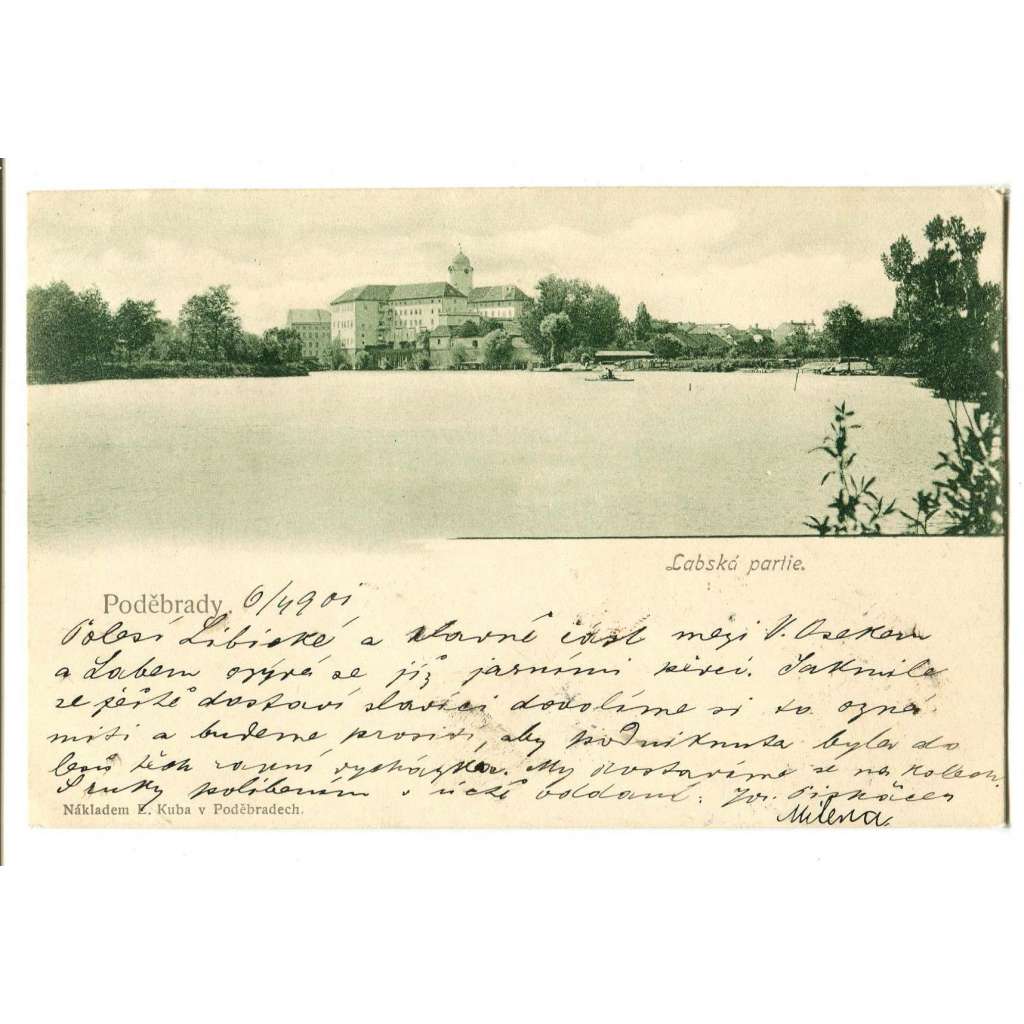 Labská partie.
Poděbrady, 6/4 901
Polesí Libické a hlavně část mezi V. Osekem
a Labem ozývá se již jarními pěvci. Jakmile
se ještě dostaví slavíci dovolíme si to ozná-
miti a budeme prositi, aby podniknuta byla do
lesů těch ranní vycházka. My dostavíme se na kolech.
S ruky políbením v úctě oddaní: Jos.
Milena.
Nákladem E. Kuba v Poděbradech.